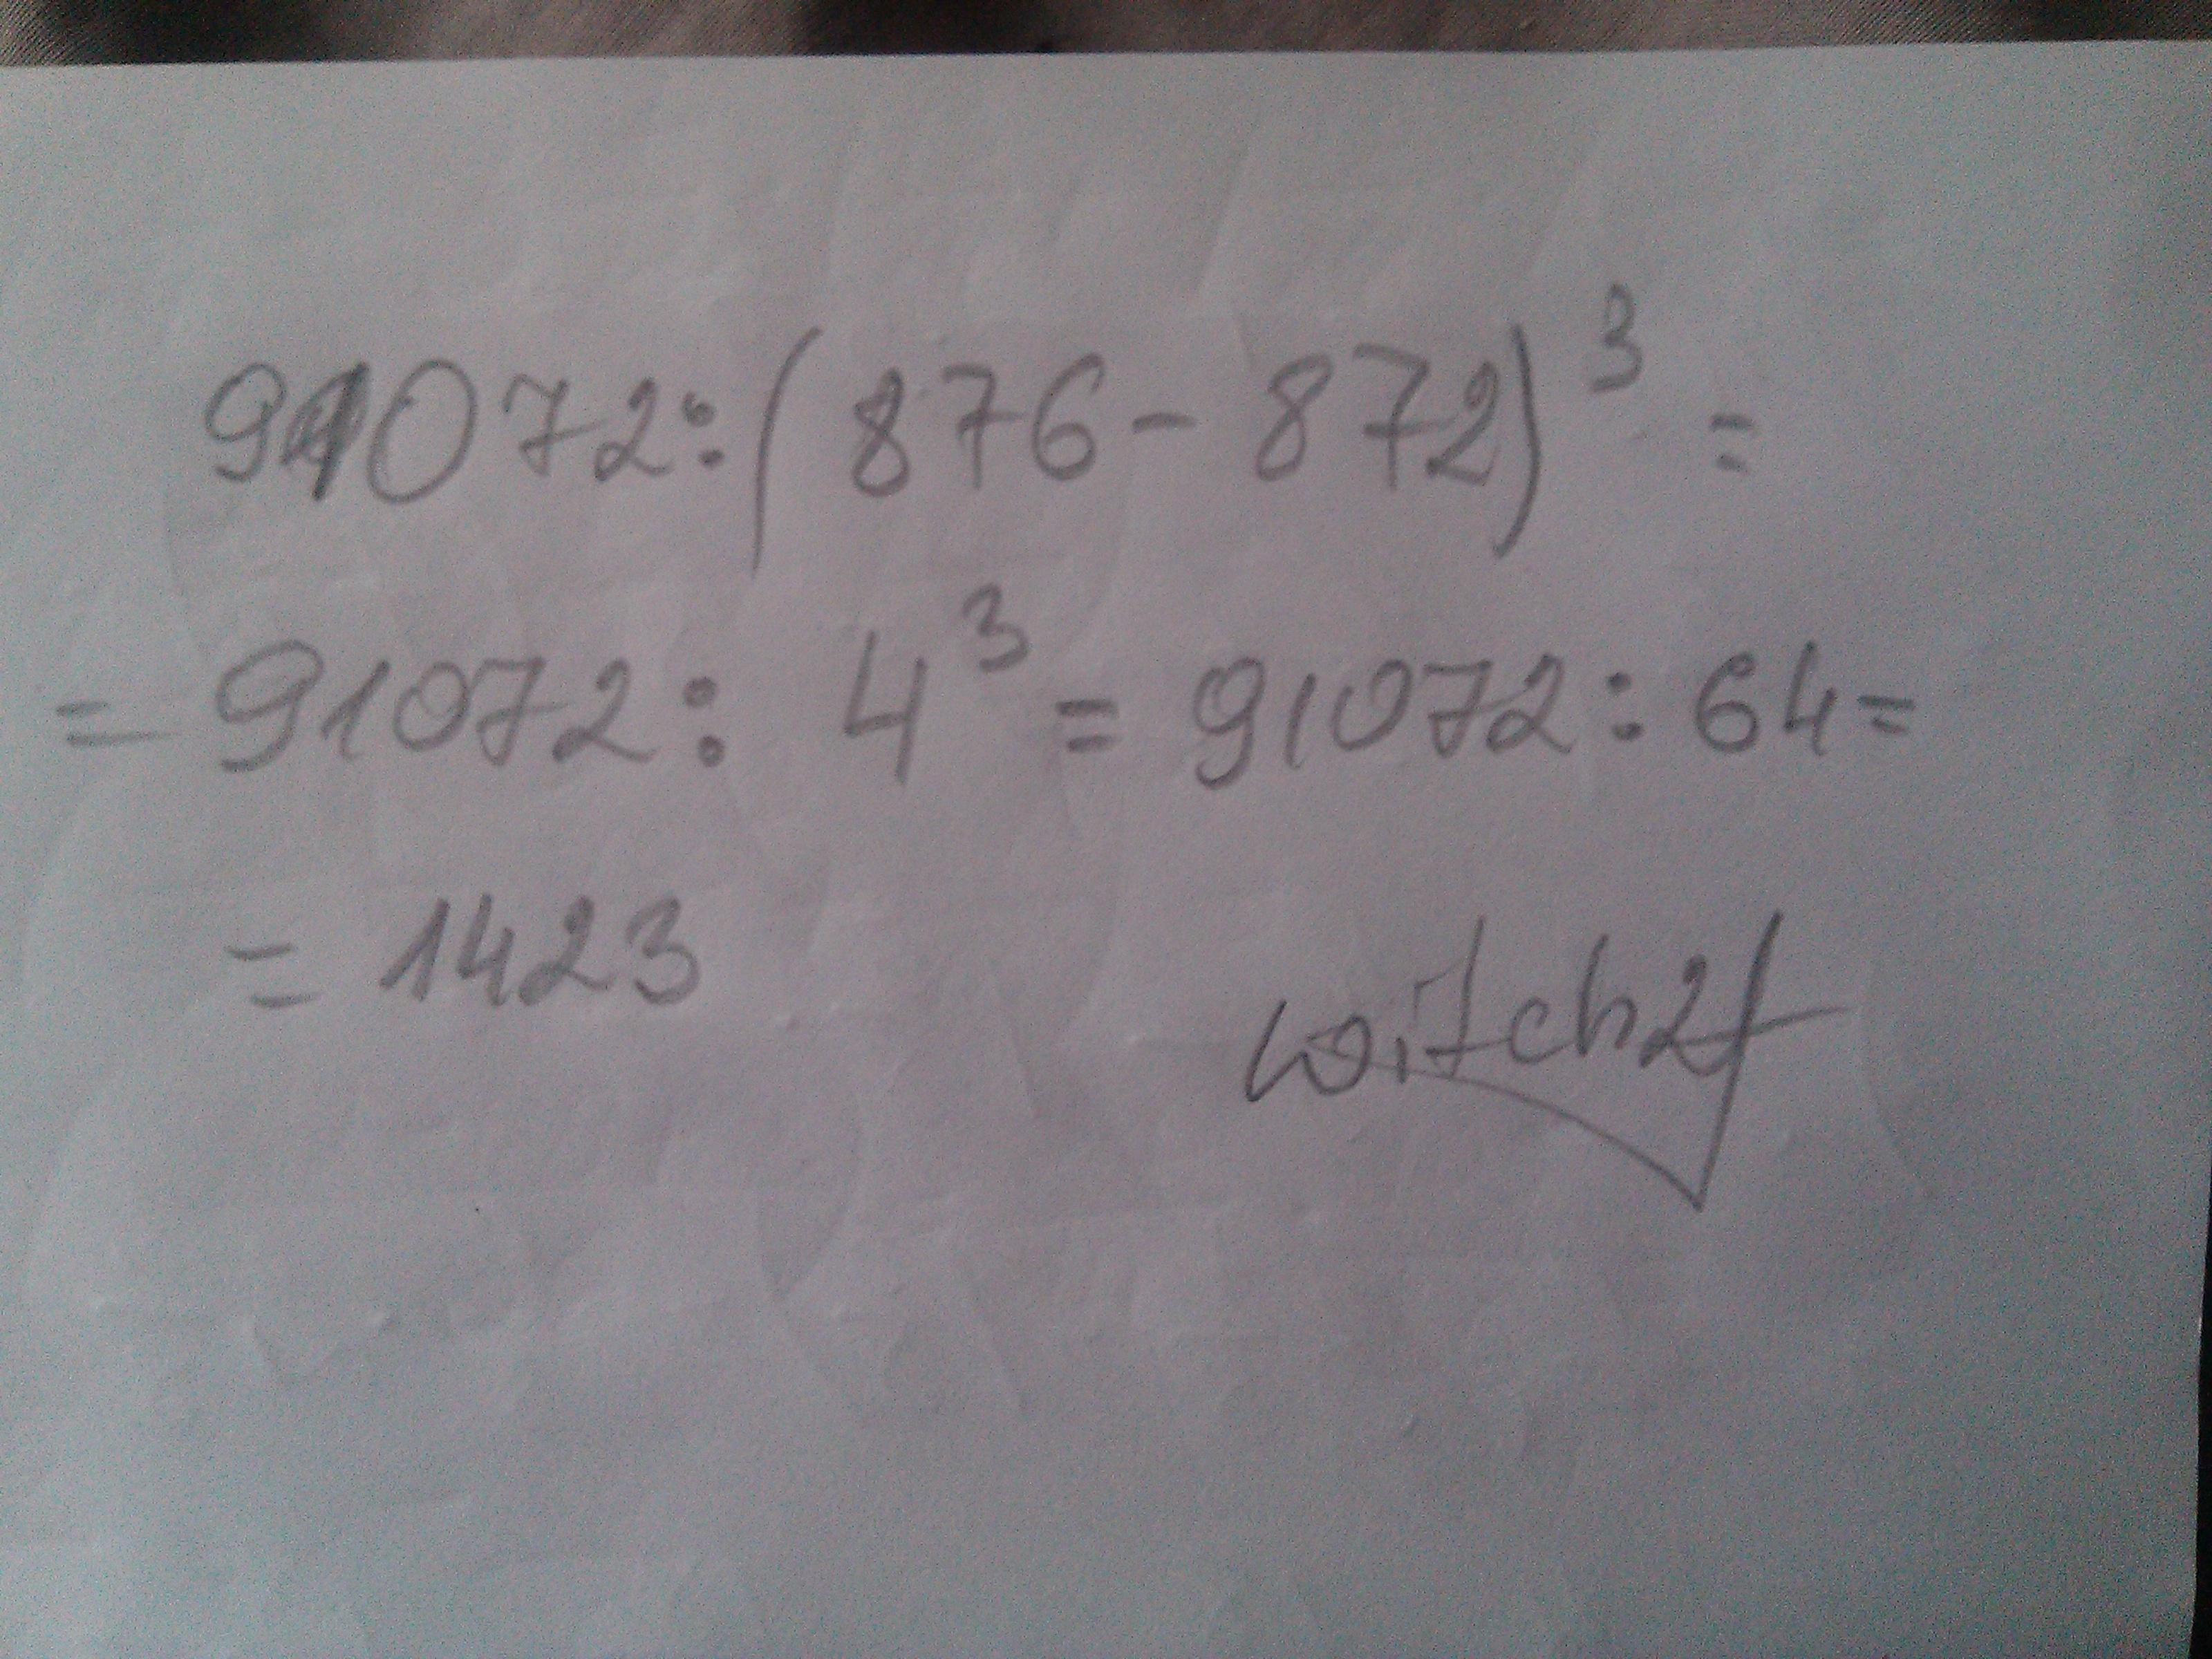 91072:(876-872)³=
=91072: 4³=91072:64=
=1423
witch2f